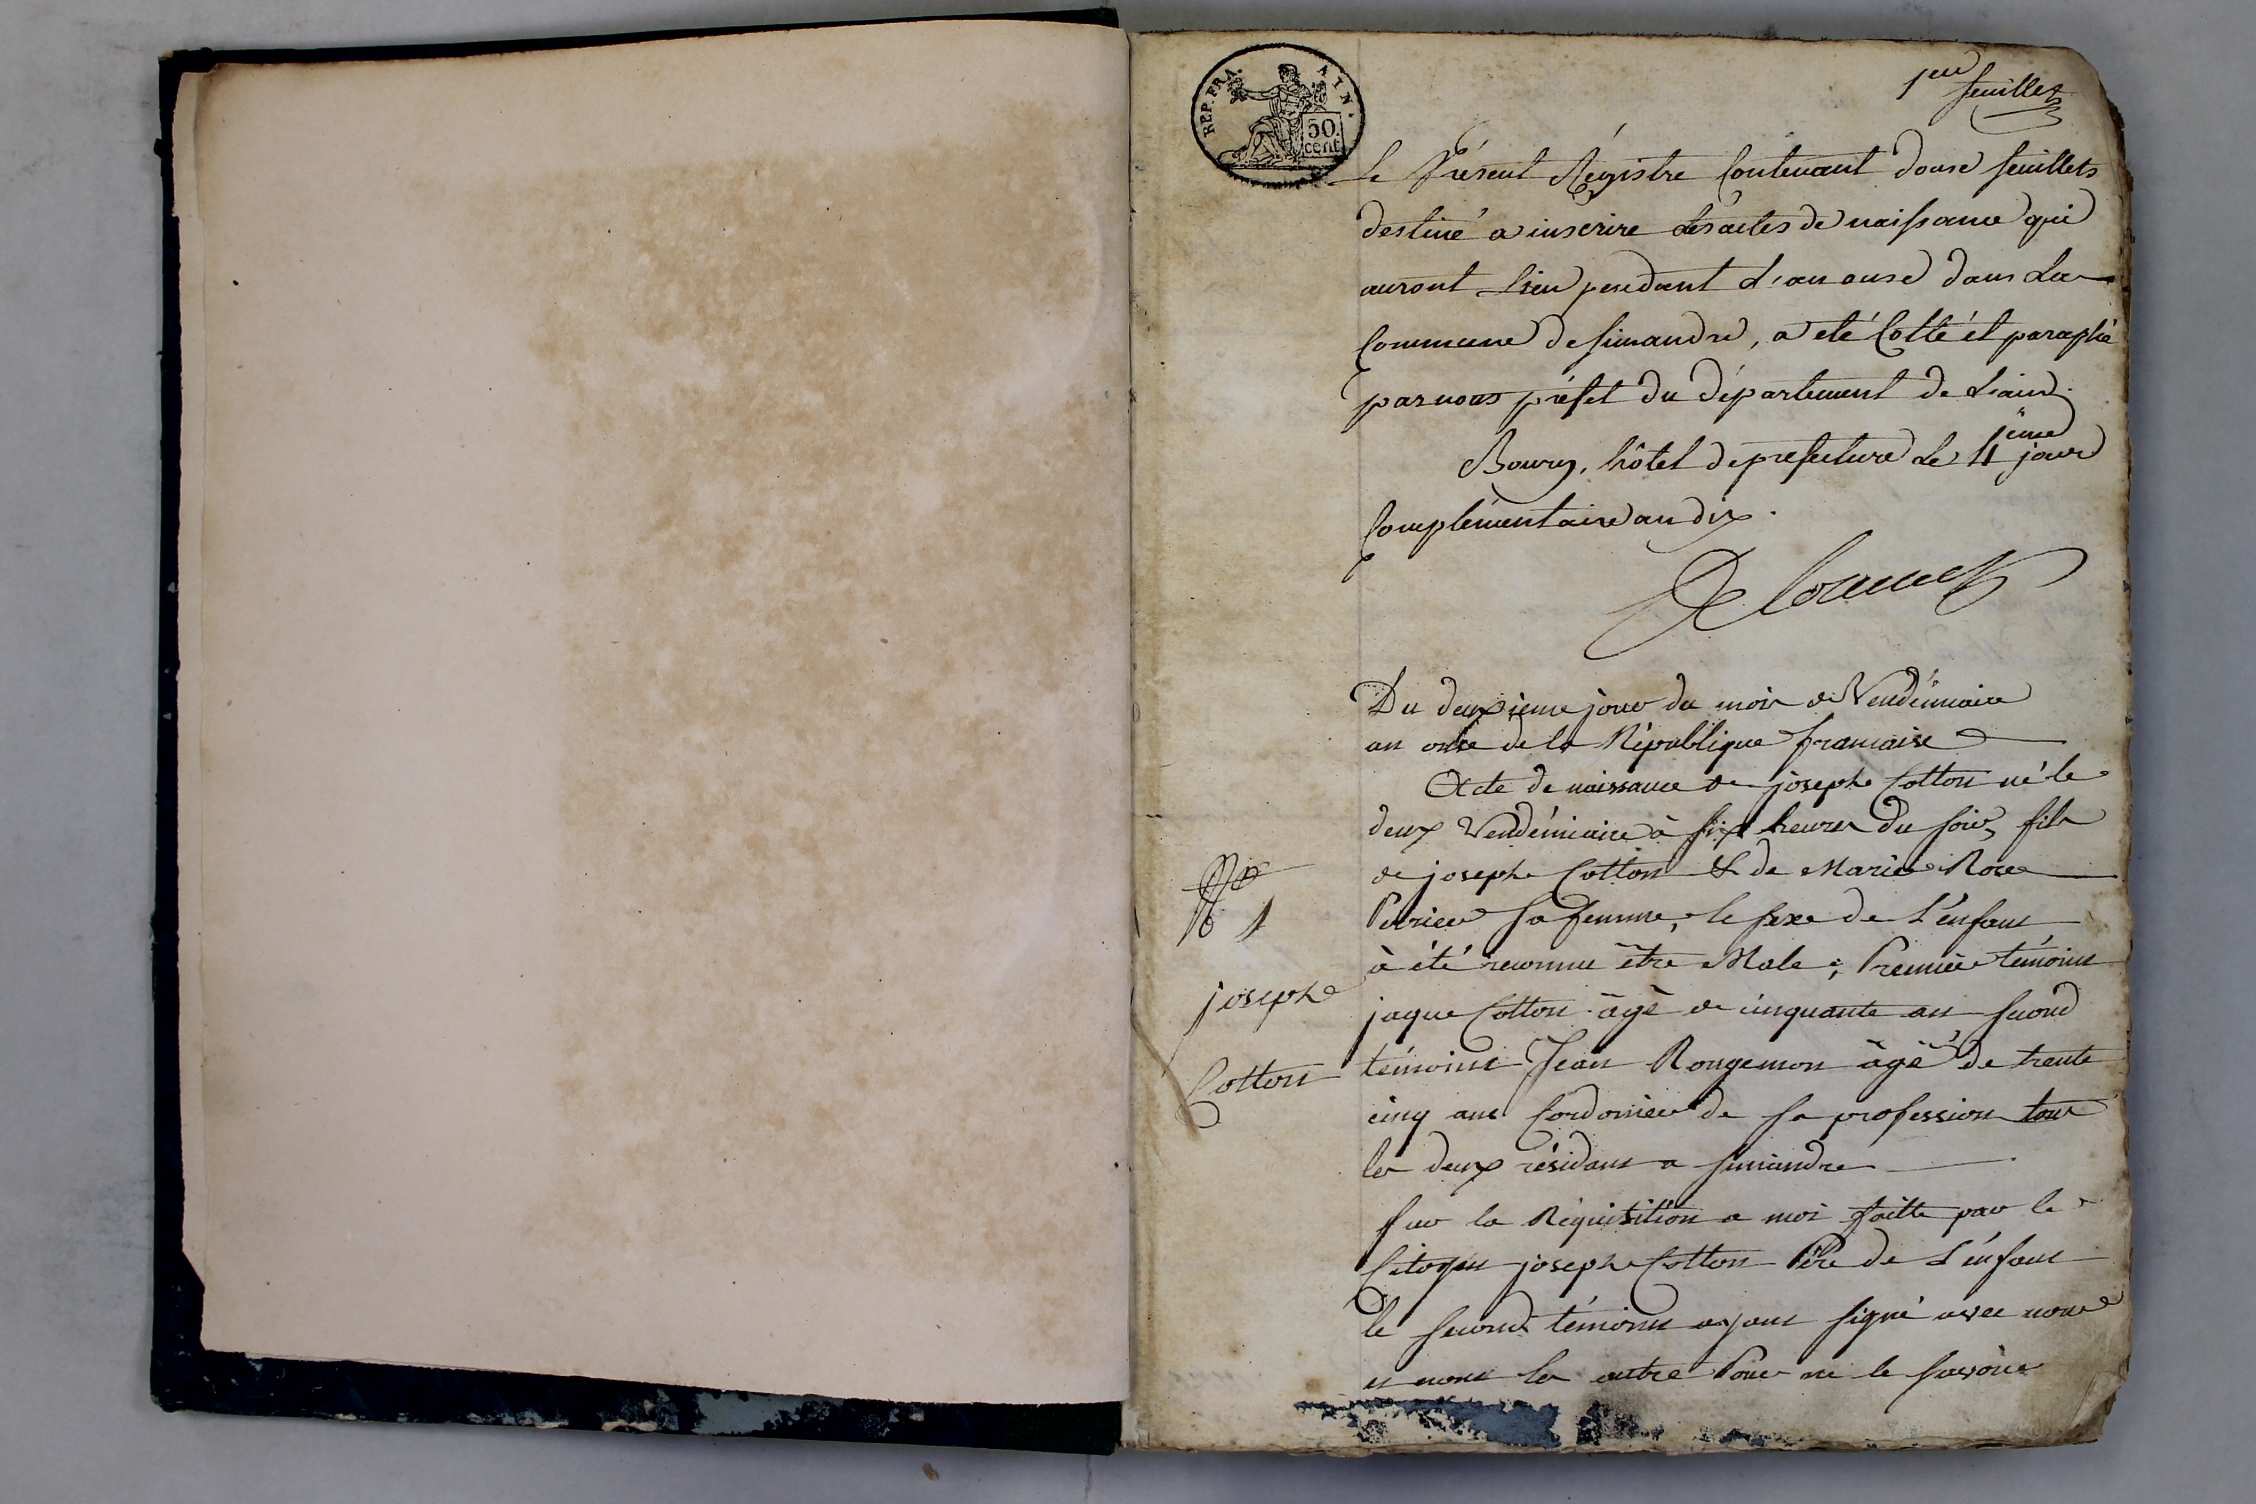 REP. FRA. AIN.
50.
cent.
1er feuillet
Le Présent Régistre Contenant douse feuillets
destiné a inscrire les actes de naissance qui
auront lieu pendant l'an onse dans la
Commune de Simandre, a eté Cotté et paraphé
par nous préfet du département de L'ain.
Bourg, hôtel de prefecture le 4ème jour
Complémentaire an dix.
Du deuxieme jour du mois de Vendémiaire
an onse de la République francaise
Acte de naissance de joseph Cotton né le
deux Vendémiaire à six heures du soir, fils
de joseph Cotton & de Marie Rose
sa femme, le sexe de L'enfant
à été reconnu être Male ; Premier témoins
jaque Cotton âgé de cinquante ans second
témoins Jean Rougemon âgé de trente
cinq ans Cordonier de sa profession tous
les deux résidans a simandre
sur la Réquisition a moi faitte par le
Citoyen joseph Cotton Père de L'enfant
le second témoins ayant signé avec nous
et nons les autre Pour ne le savoir
No 1
joseph
Cotton